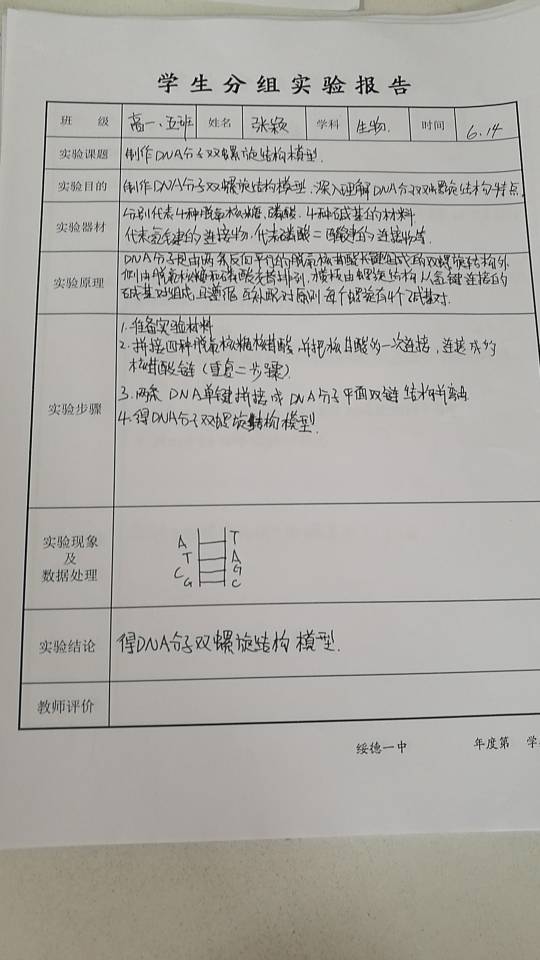 学生分组实验报告
班 级 高一、五班 姓名 张颖 学科 生物. 时间 6.14
实验课题 制作DNA分子双螺旋结构模型.
实验目的 制作DNA分子双螺旋结构模型.深入理解DNA分子双螺旋结构特点.
实验器材 分别代表4种脱氧核糖、磷酸、4种碱基的材料
代表氢键的连接物.代表磷酸二酯键的连接物等.
实验原理 DNA分子是由两条反向平行的脱氧核苷酸长链组成的双螺旋结构外
侧由脱氧核糖和磷酸交替排列.
碱基对组成,且遵循互补配对原则
实验步骤 1.准备实验材料
2.拼接四种脱氧核糖核苷酸,并把核苷酸的一次连接,连接成的
核苷酸链(重复二步骤)
3.两条DNA单链拼接成DNA分子平面双链结构并弯曲
4.得DNA分子双螺旋结构模型.
实验现象
及
数据处理
A T
T A
C G
G C
实验结论 得DNA分子双螺旋结构模型.
教师评价
绥德一中 年度第 学